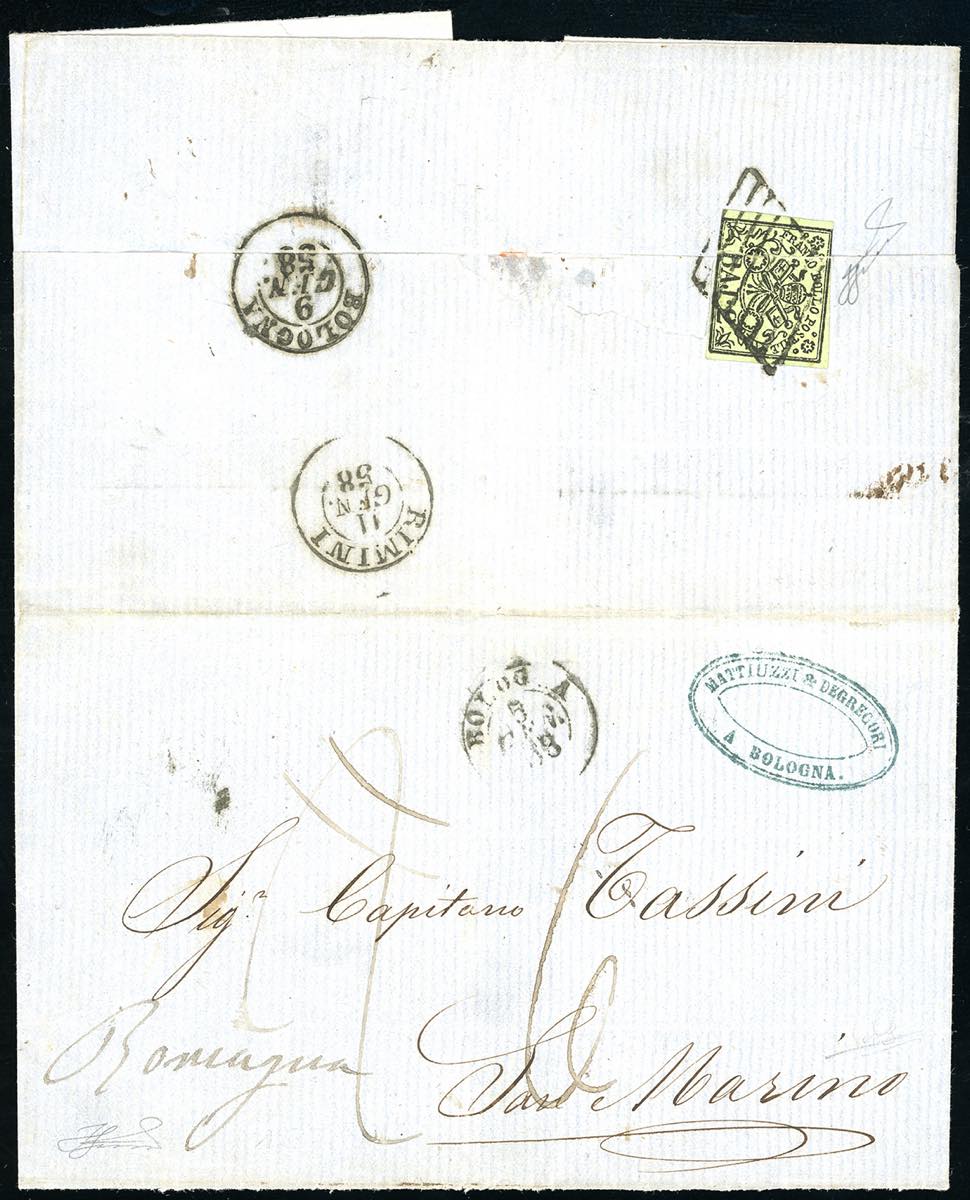 BOLOGNA
9
GEN.
58
FRANCO BOLLO POSTALE
BAJ 2
RIMINI
11
GEN.
58
BOLOG A
MATTIUZZI & DEGREGORI
A BOLOGNA.
Sigr. Capitano Tassini
Romagna
San Marino